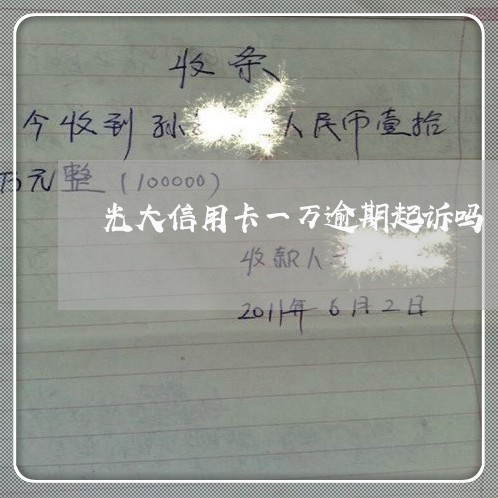 收条
今收到孙 人民币壹拾
万元整(100000)
光大信用卡一万逾期起诉吗
收款人
2011年6月2日